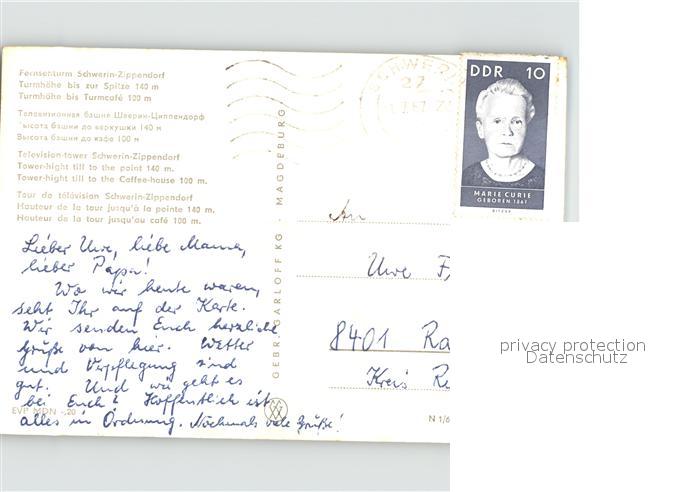 Fernsehturm Schwerin-Zippendorf
Turmhöhe bis zur Spitze 140 m
Turmhöhe bis Turmcafé 100 m
Телевизионная башня Шверин-Циппендорф
Высота башни до верхушки 140 м
Высота башни до кафе 100 м
Television-tower Schwerin-Zippendorf
Tower-hight till to the point 140 m.
Tower-hight till to the Coffee-house 100 m.
Tour de télévision Schwerin-Zippendorf
Hauteur de la tour jusqu'à la pointe 140 m.
Hauteur de la tour jusqu'au café 100 m.
Lieber Uwe, liebe Mama,
lieber Papa!
Wo wir heute waren,
seht Ihr auf der Karte.
Wir senden Euch herzliche
Grüße von hier. Wetter
und Verpflegung sind
gut. Und wie geht es
bei Euch? Hoffentlich ist
alles in Ordnung. Nochmals viele Grüße!
EVP MDN -,20
GEBR. GARLOFF KG · MAGDEBURG
SCHWERIN
22
DDR 10
MARIE CURIE
GEBOREN 1867
An
Uwe F
8401 Ra
Kreis Re
N 1/6
privacy protection
Datenschutz